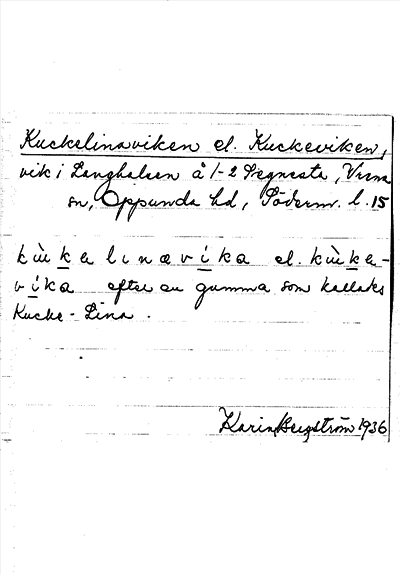 Kuckelinaviken el. Kuckeviken,
vik i Långhalsen å 1-2 Segnesta, Vrena
sn, Oppunda hd, Söderm. l. 15
kùkelinavíka el. kùke-
víka efter en gumma som kallats
Kucke-Lina.
Karin Bergström 1936